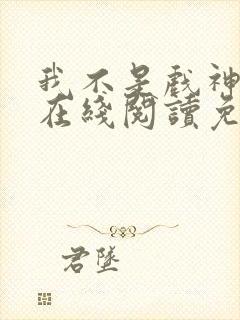 我不是戲神
在綫閱讀免
君墜